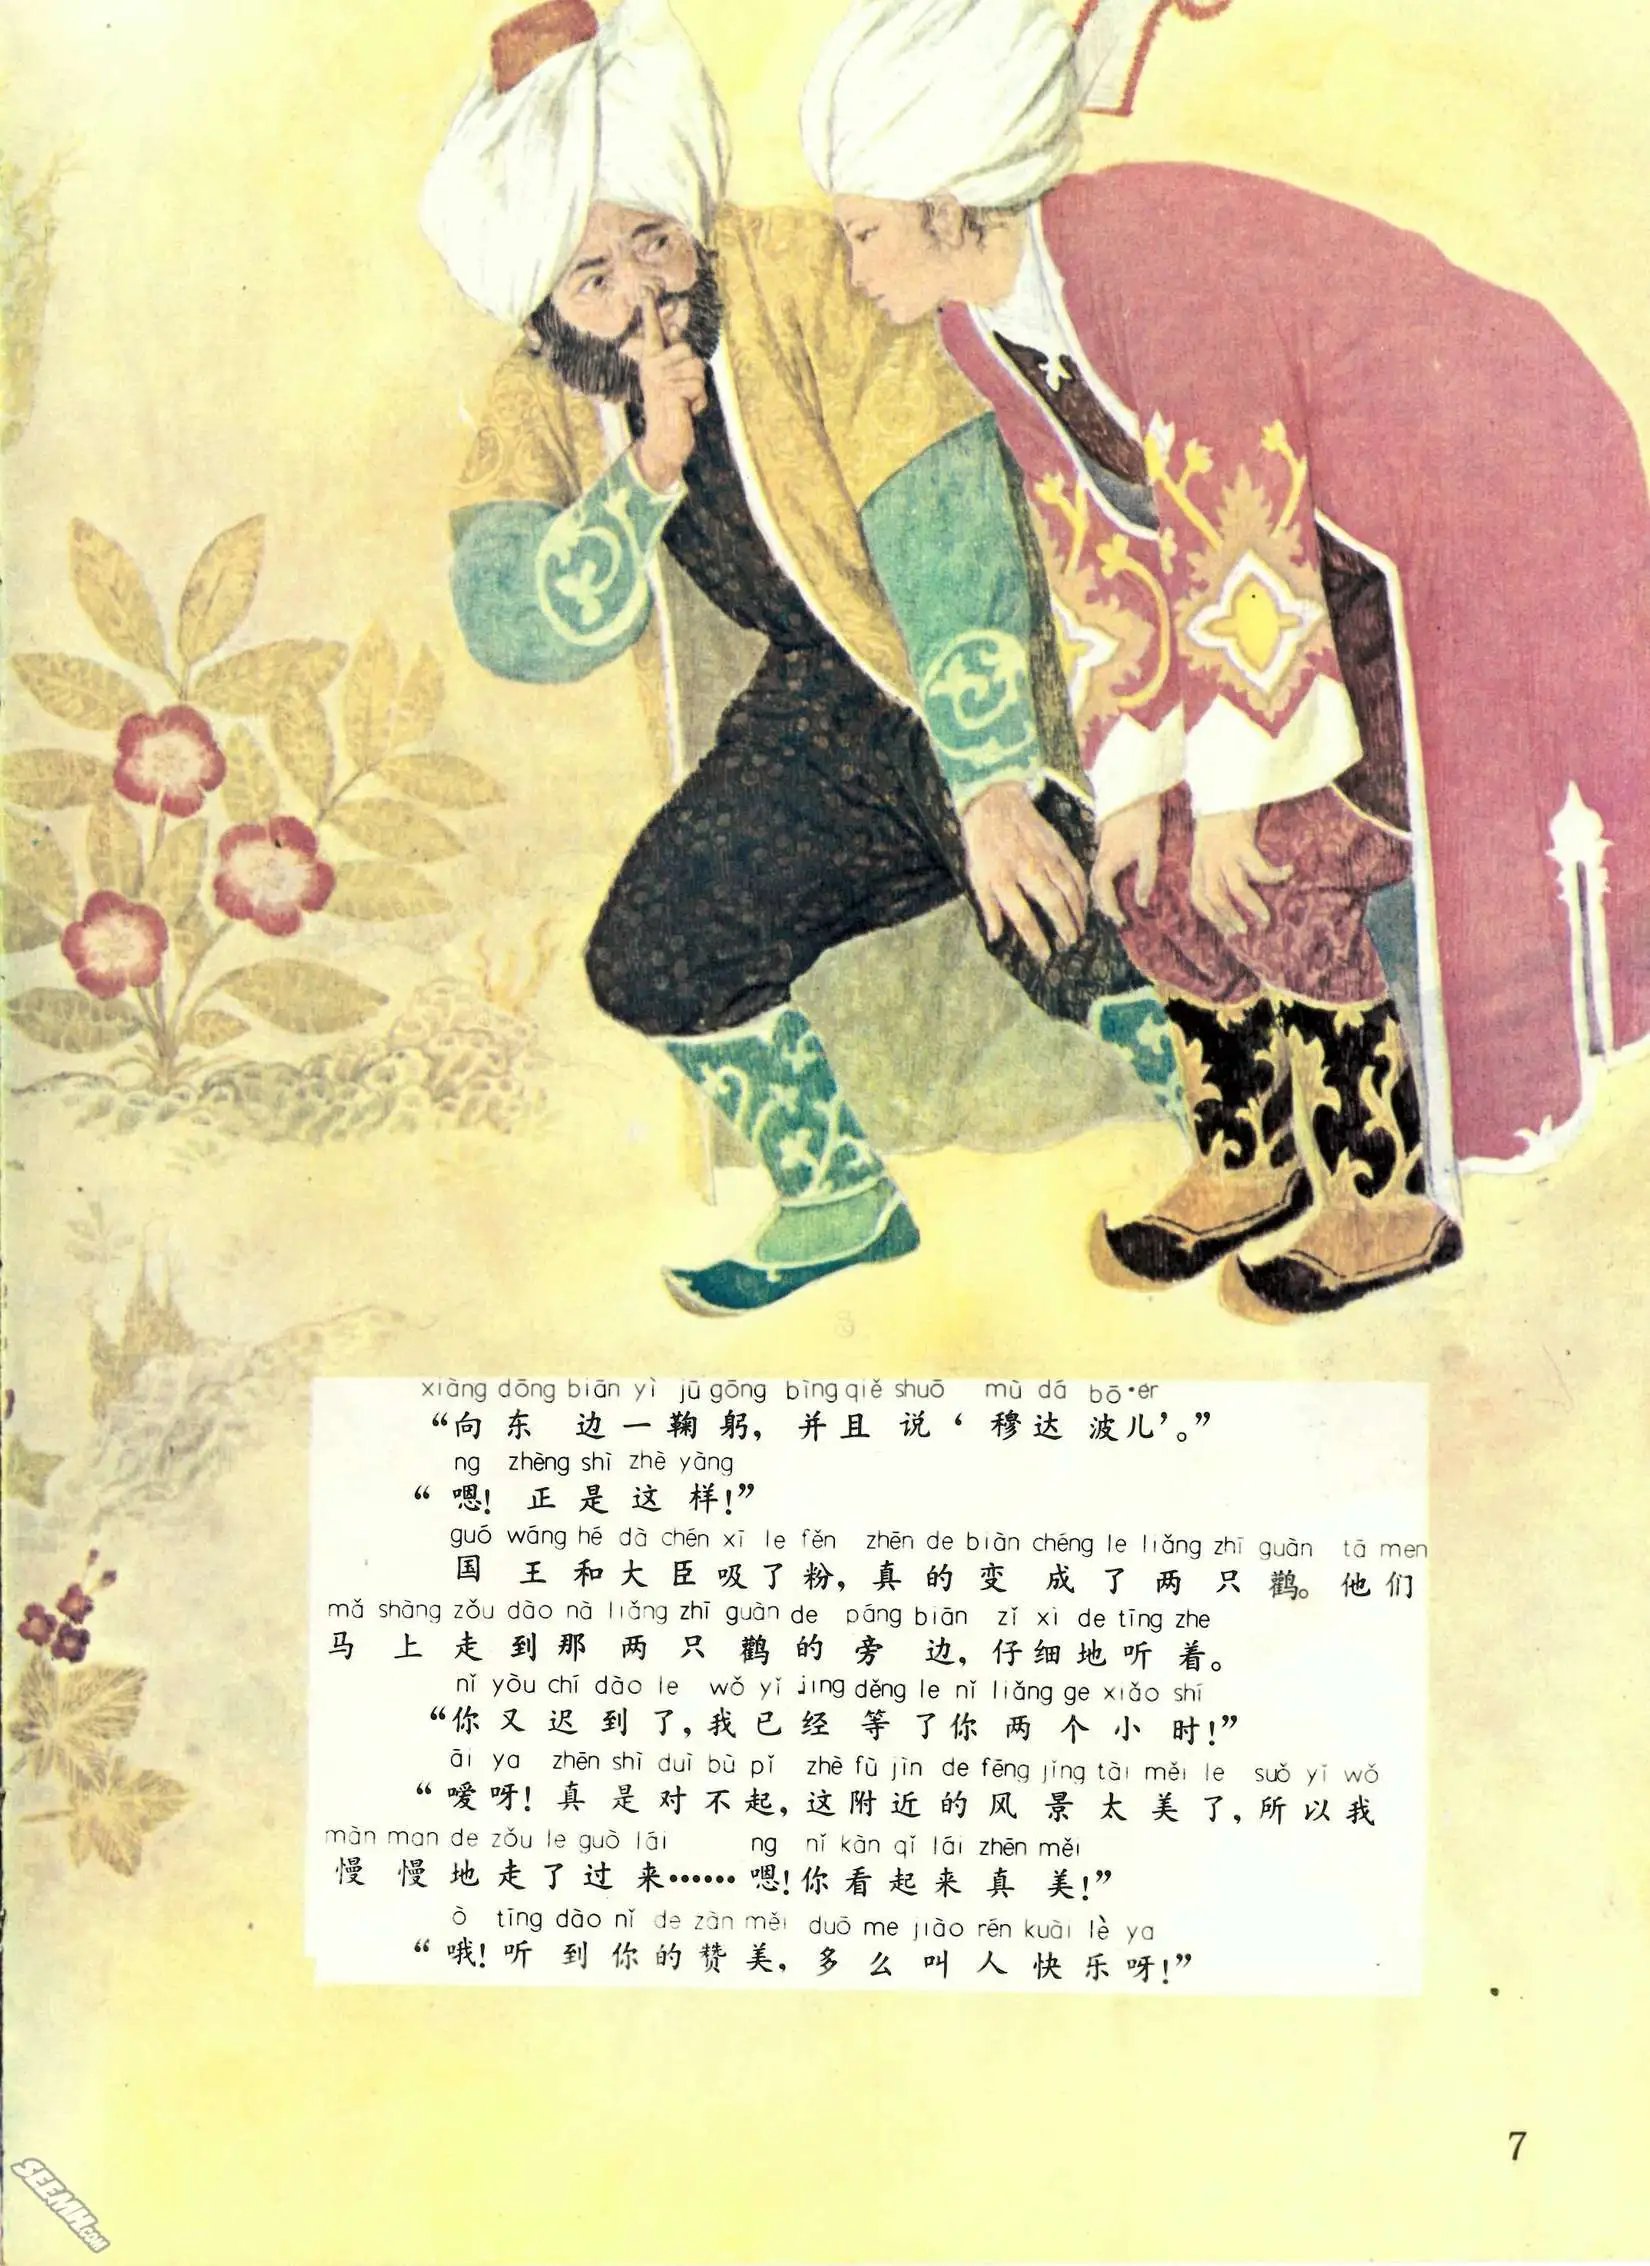 xiàng dōng biān yì jū gōng bìng qiě shuō mù dá bō·ér
“向东边一鞠躬，并且说‘穆达波儿’。”
ng zhèng shì zhè yàng
“嗯！正是这样！”
guó wáng hé dà chén xī le fěn zhēn de biàn chéng le liǎng zhī guàn tā men
国王和大臣吸了粉，真的变成了两只鹳。他们
mǎ shàng zǒu dào nà liǎng zhī guàn de páng biān zǐ xì de tīng zhe
马上走到那两只鹳的旁边，仔细地听着。
nǐ yòu chí dào le wǒ yǐ jing děng le nǐ liǎng ge xiǎo shí
“你又迟到了，我已经等了你两个小时！”
āi ya zhēn shì duì bù pǐ zhè fù jìn de fēng jǐng tài měi le suǒ yǐ wǒ
“嗳呀！真是对不起，这附近的风景太美了，所以我
màn man de zǒu le guò lái ng nǐ kàn qǐ lái zhēn měi
慢慢地走了过来……嗯！你看起来真美！”
ò tīng dào nǐ de zàn měi duō me jiào rén kuài lè ya
“哦！听到你的赞美，多么叫人快乐呀！”
7
SEEMH.COM